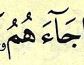 جَآءَ هُمُ